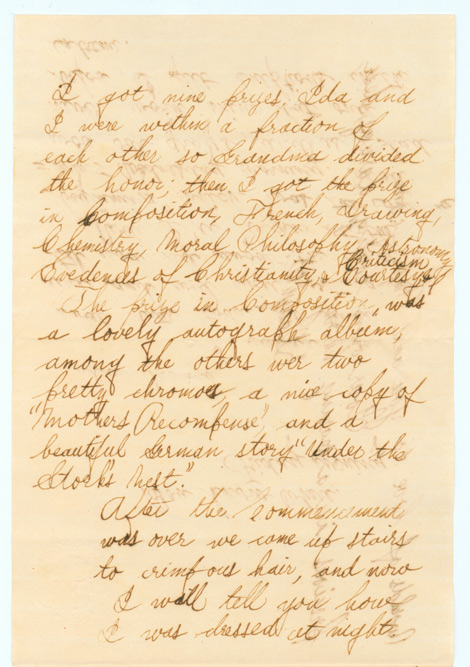 I got nine prizes. Ida and
I were within a fraction of
each other so Grandma divided
the honor; then I got the prize
in Composition, French, Drawing,
Chemistry, Moral Philosophy, Astronomy
Evedences of Christianity, Criticism & Courtesy.
The prize in Composition was
a lovely autograph album,
among the others wer two
pretty chromoes, a nice copy of
"Mothers Recompense", and a
beautiful German story "Under the
Stork's Nest."
After the commencement
was over we came up stairs
to crimp our hair, and now
I will tell you how
I was dressed at night.